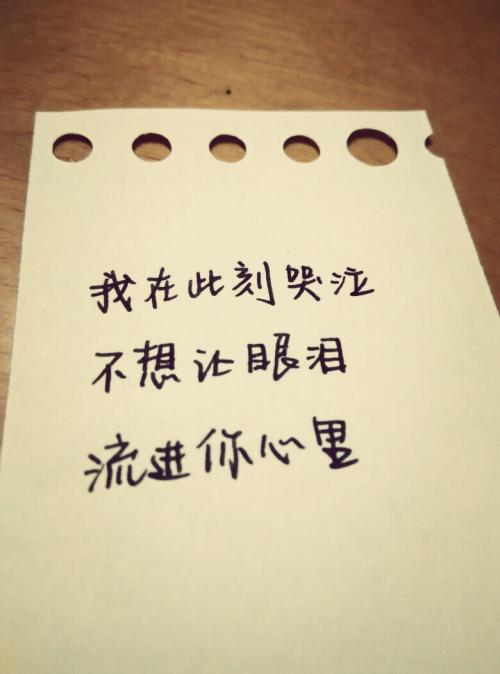 我在此刻哭泣
不想让眼泪
流进你心里